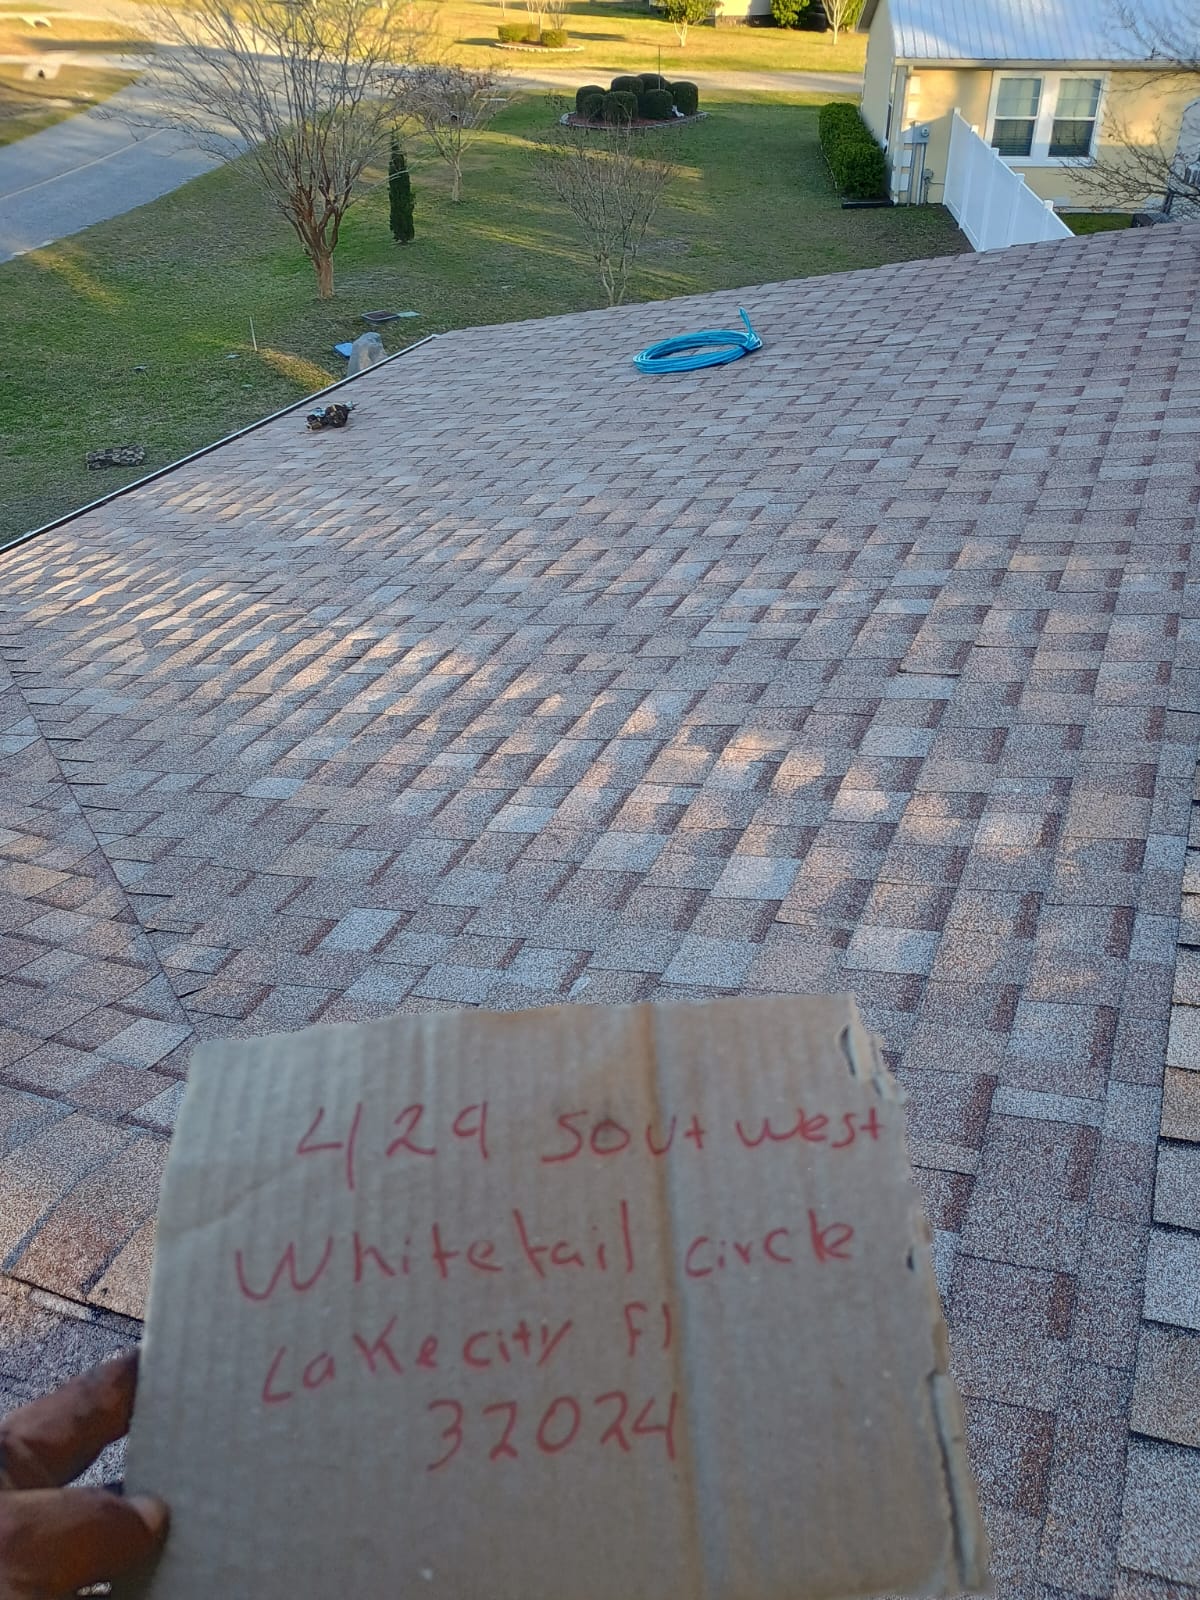 429 Sout west
Whitetail circle
Lake city Fl
32024